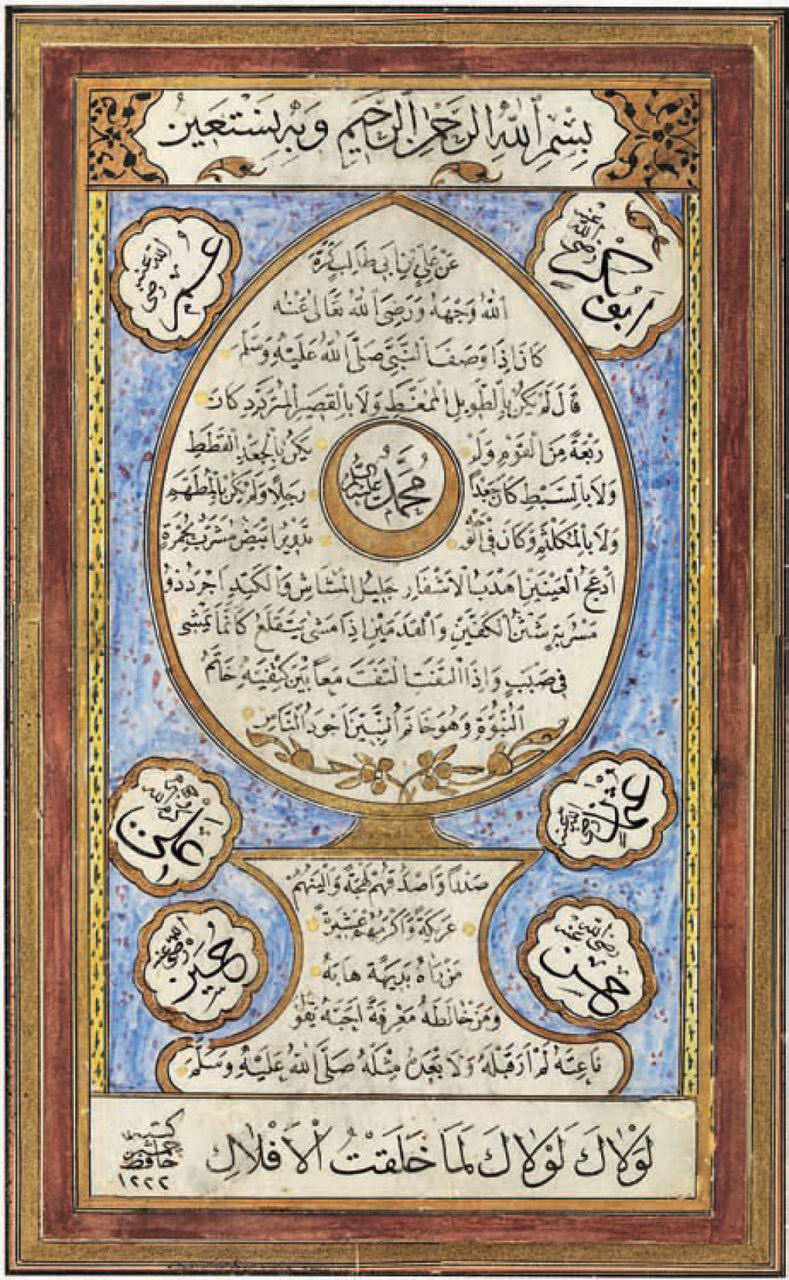 بِسْمِ اللهِ الرَّحْمٰنِ الرَّحِيمِ وَبِهِ نَسْتَعِينُ
ابو بكر رضى الله عنه
عمر رضى الله عنه
عَنْ عَلِيِّ بْنِ اَبِى طَالِبٍ كَرَّمَ
اللهُ وَجْهَهُ وَرَضِىَ اللهُ تَعَالٰى عَنْهُ
كَانَ اِذَا وَصَفَ النَّبِىَّ صَلَّى اللهُ عَلَيْهِ وَسَلَّمَ
قَالَ لَمْ يَكُنْ بِالطَّوِيلِ الْمُمَغَّطِ وَلَا بِالْقَصِيرِ الْمُتَرَدِّدِ كَانَ
رَبْعَةً مِنَ الْقَوْمِ وَلَمْ يَكُنْ بِالْجَعْدِ الْقَطَطِ
وَلَا بِالسَّبِطِ كَانَ جَعْدًا رَجِلًا وَلَمْ يَكُنْ بِالْمُطَهَّمِ
محمد عليه السلام
وَلَا بِالْمُكَلْثَمِ وَكَانَ فِى الْوَجْهِ تَدْوِيرٌ اَبْيَضُ مُشْرَبٌ بِحُمْرَةٍ
اَدْعَجُ الْعَيْنَيْنِ اَهْدَبُ الْاَشْفَارِ جَلِيلُ الْمُشَاشِ وَالْكَتَدِ اَجْرَدُ ذُو
مَسْرُبَةٍ شَثْنُ الْكَفَّيْنِ وَالْقَدَمَيْنِ اِذَا مَشٰى يَتَقَلَّعُ كَاَنَّمَا يَمْشِى
فِى صَبَبٍ وَاِذَا الْتَفَتَ الْتَفَتَ مَعًا بَيْنَ كَتِفَيْهِ خَاتَمُ
النُّبُوَّةِ وَهُوَ خَاتَمُ النَّبِيِّينَ اَجْوَدُ النَّاسِ
عثمان رضى الله عنه
على رضى الله عنه
صَدْرًا وَاَصْدَقُهُمْ لَهْجَةً وَاَلْيَنُهُمْ
عَرِيكَةً وَاَكْرَمُهُمْ عَشِيرَةً
مَنْ رَاٰهُ بَدِيهَةً هَابَهُ
وَمَنْ خَالَطَهُ مَعْرِفَةً اَحَبَّهُ يَقُولُ
نَاعِتُهُ لَمْ اَرَ قَبْلَهُ وَلَا بَعْدَهُ مِثْلَهُ صَلَّى اللهُ عَلَيْهِ وَسَلَّمَ
حسن رضى الله عنه
حسين رضى الله عنه
لَوْلَاكَ لَوْلَاكَ لَمَا خَلَقْتُ الْاَفْلَاكَ
كتبه
چمشير
حافظ
١٢٢٢